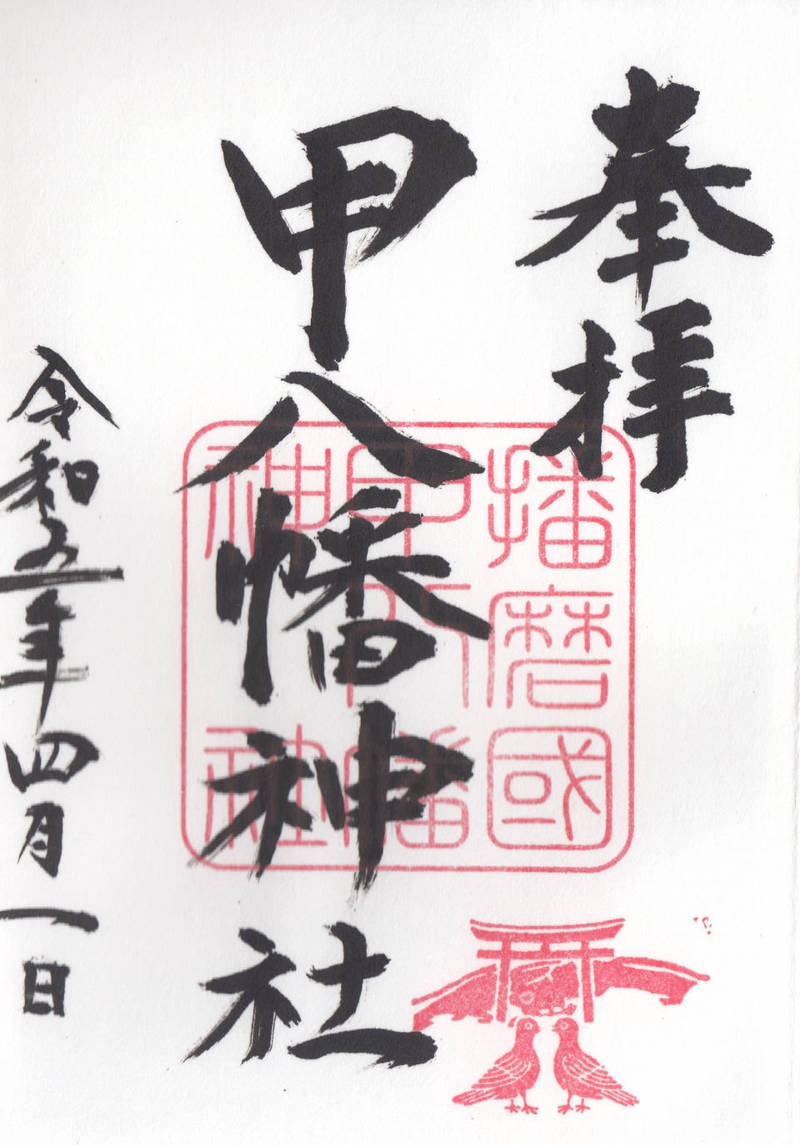 奉拝
播磨國
甲八幡
神社
甲八幡神社
令和五年四月一日